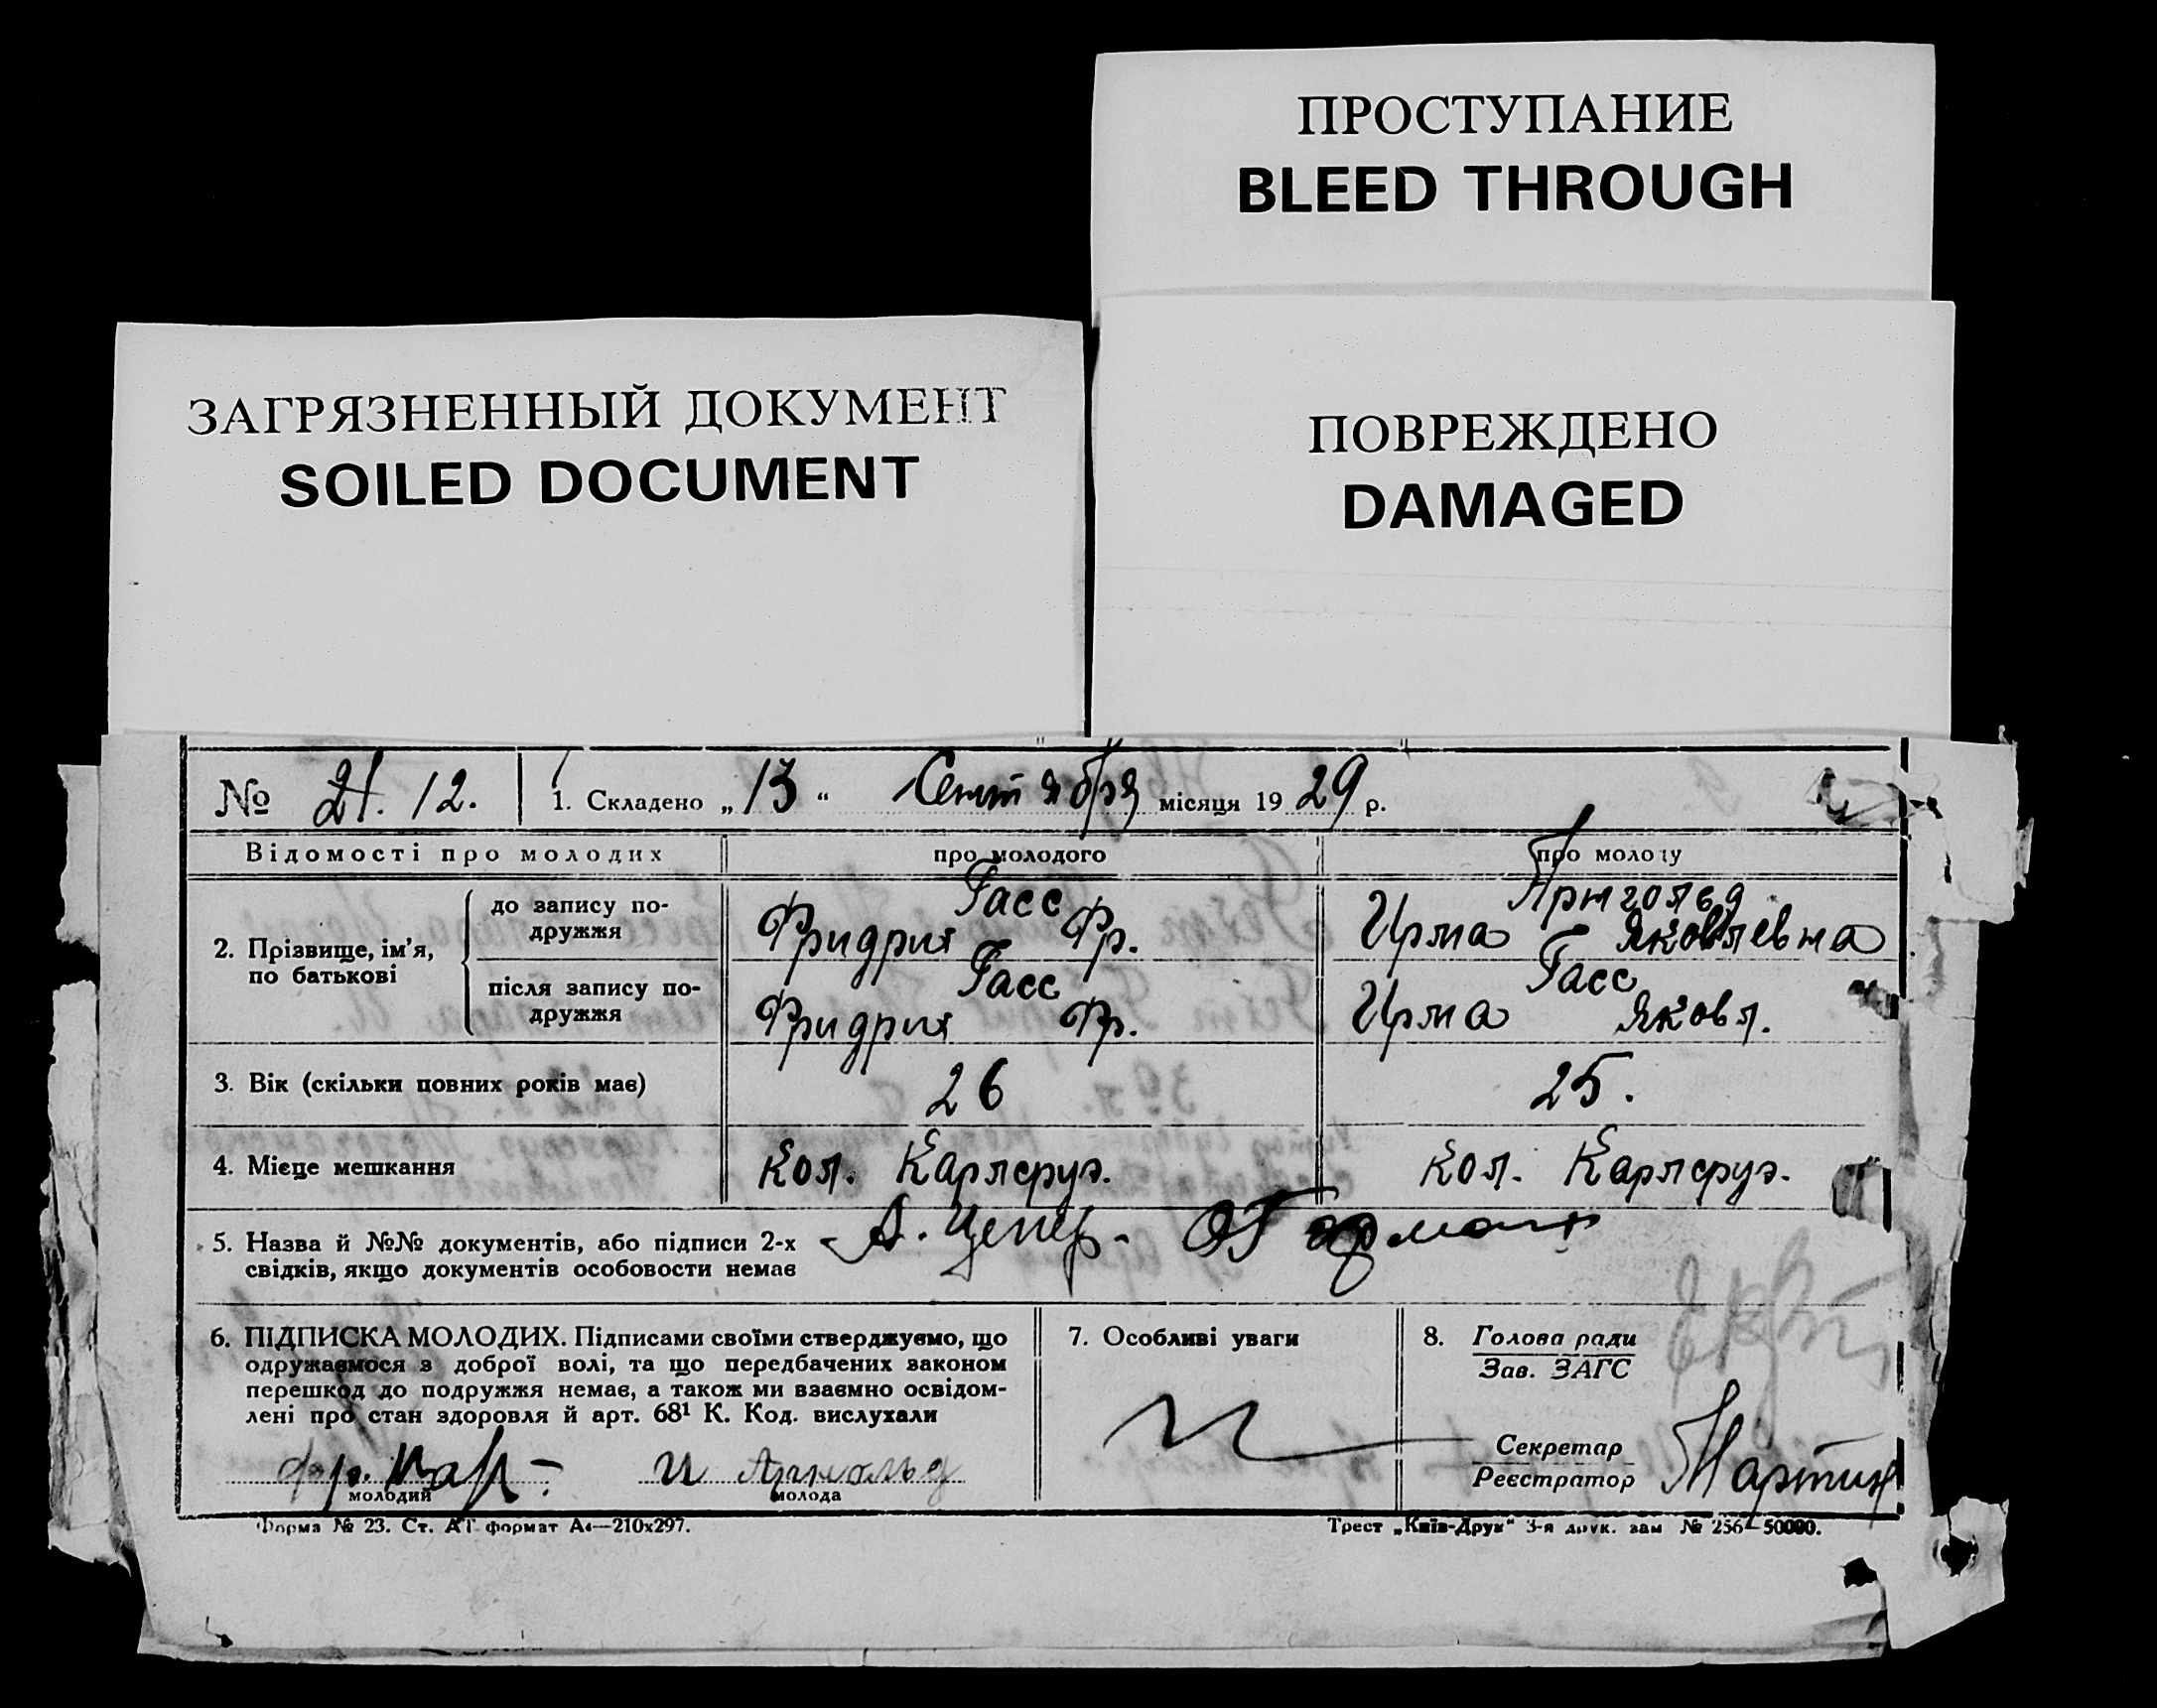 ПРОСТУПАНИЕ
BLEED THROUGH
ЗАГРЯЗНЕННЫЙ ДОКУМЕНТ
SOILED DOCUMENT
ПОВРЕЖДЕНО
DAMAGED
№ 21. 12. 1. Складено „13“ Сентября місяця 1929 р.
Відомості про молодих про молодого про молоду
2. Прізвище, ім'я, по батькові
до запису по-
дружжя
Гасс
Фридрих Фр.
Ирма Яковлевна
після запису по-
дружжя
Гасс
Фридрих Фр.
Гасс
Ирма Яковл.
3. Вік (скільки повних років має) 26 25.
4. Місце мешкання Кол. Карлсруэ. Кол. Карлсруэ.
5. Назва й №№ документів, або підписи 2-х
свідків, якщо документів особовости немає
6. ПІДПИСКА МОЛОДИХ. Підписами своїми стверджуємо, що
одружаємося з доброї волі, та що передбачених законом
перешкод до подружжя немає, а також ми взаємно освідом-
лені про стан здоровля й арт. 68¹ К. Код. вислухали
молодий молода
7. Особливі уваги
8. Голова ради
Зав. ЗАГС
Секретар
Реєстратор
Мартин
Форма № 23. Ст. АТ формат А4—210х297.
Трест „Київ-Друк“ 3-я друк. зам № 256—50000.